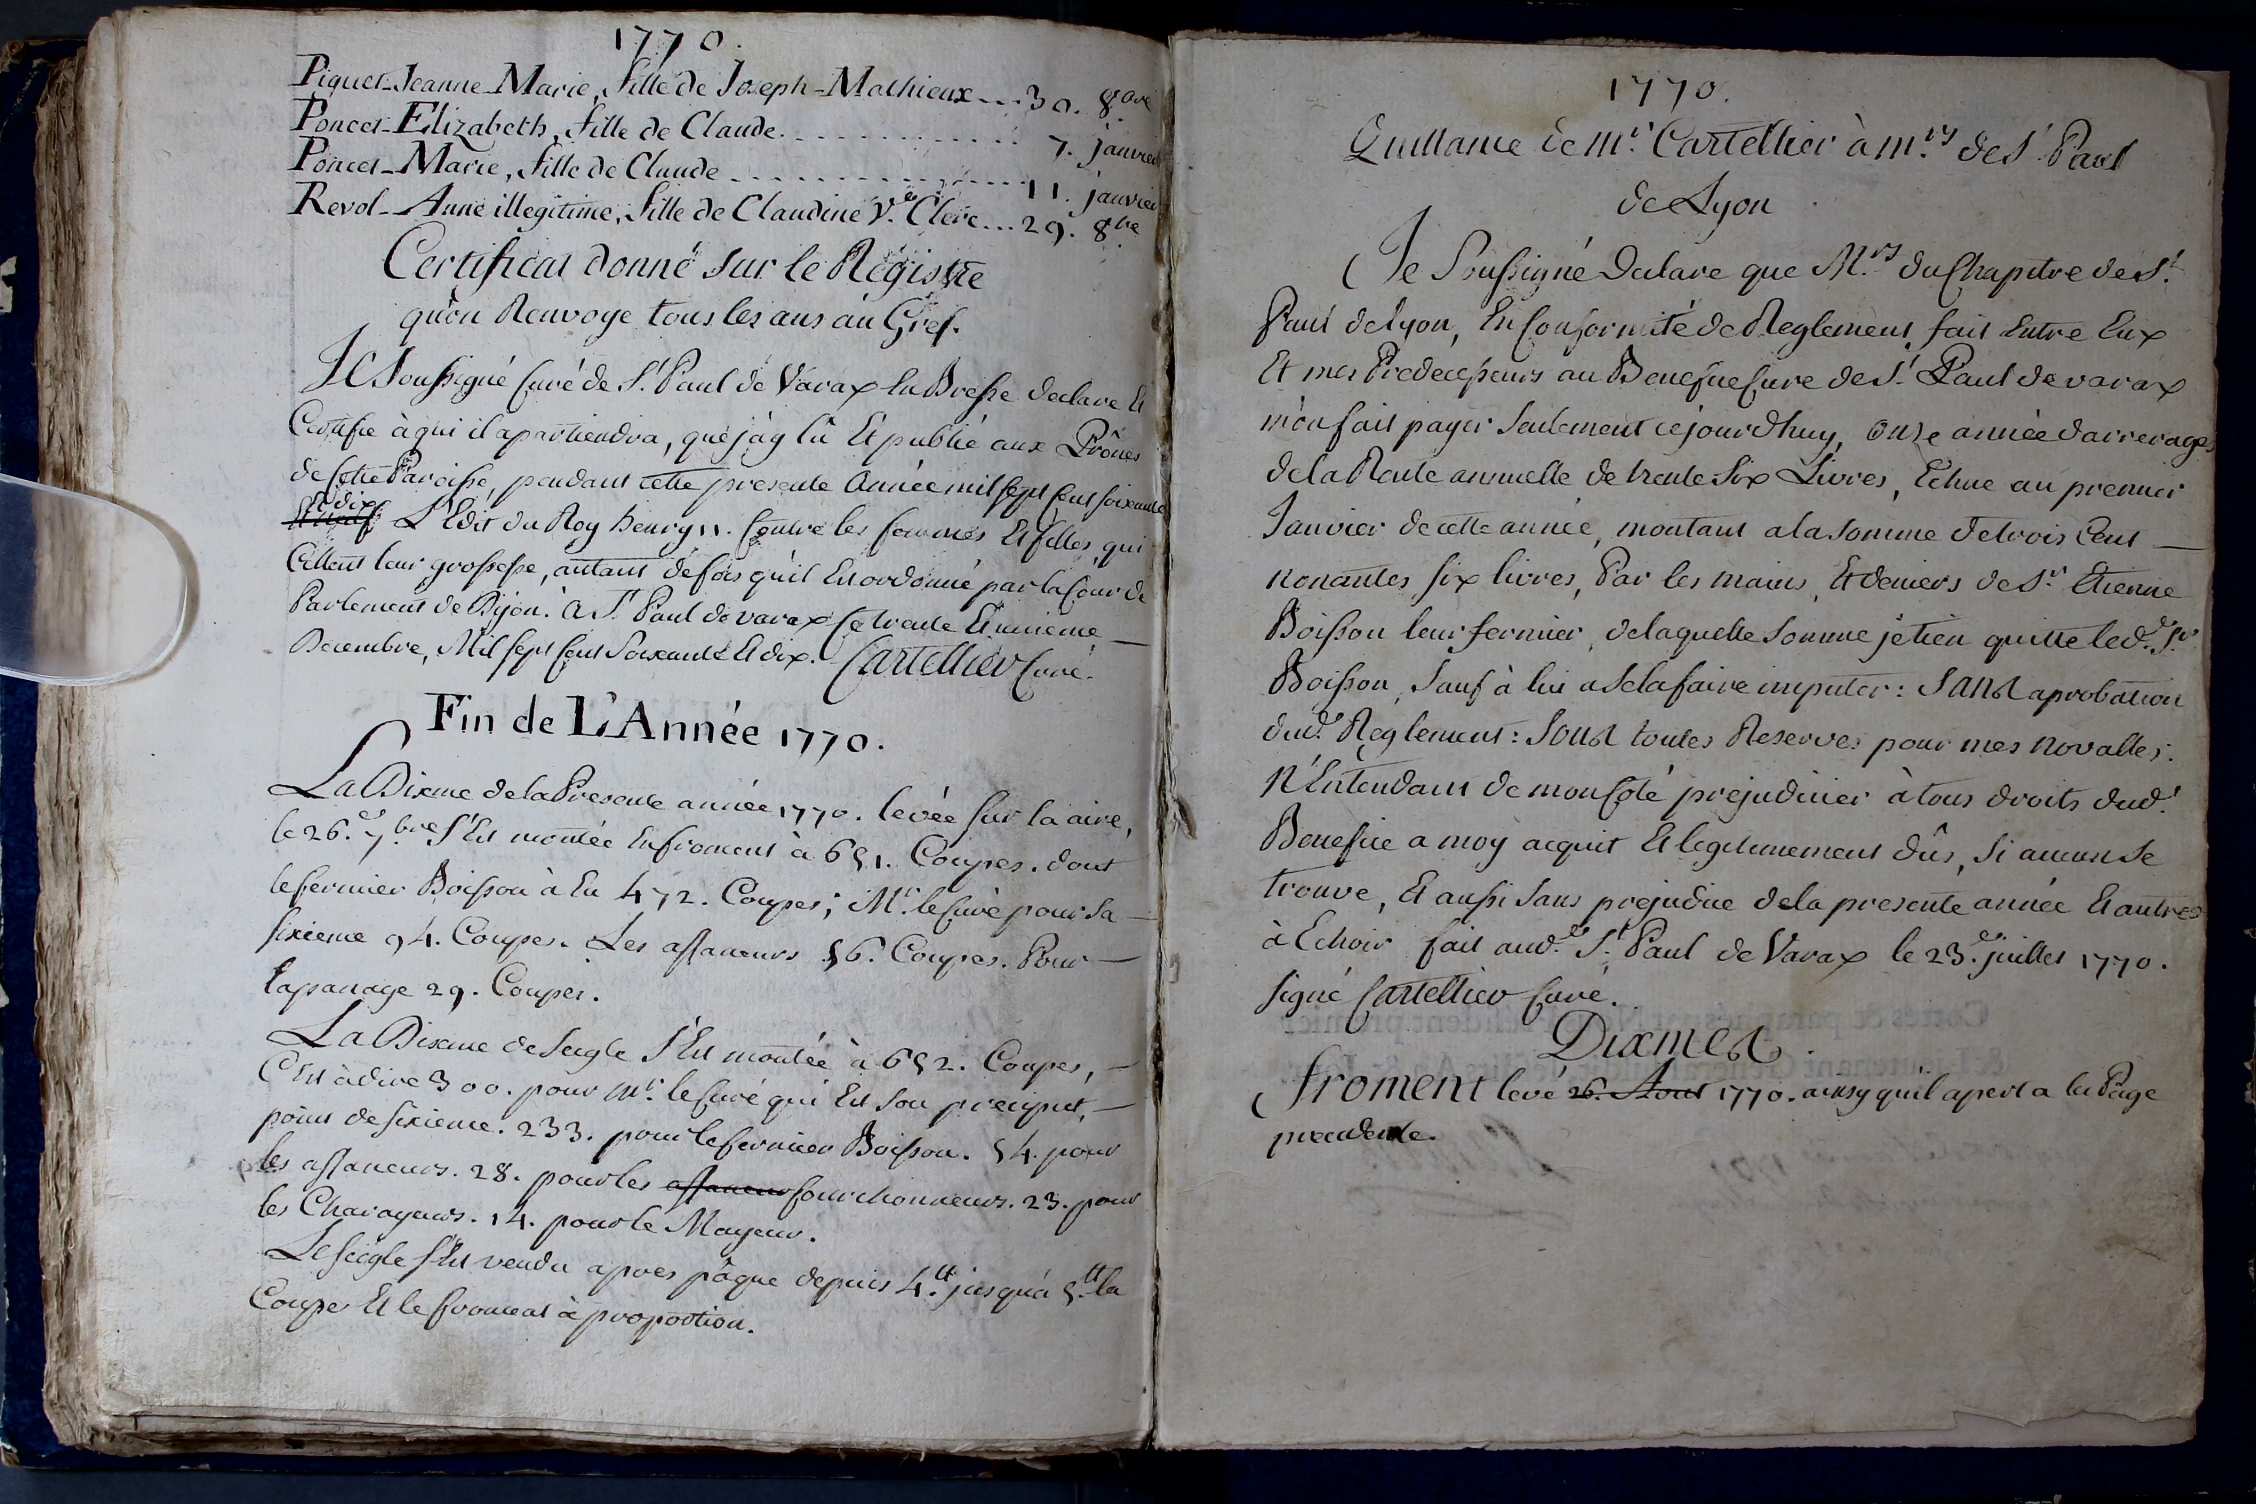 1770.
Piquet-Jeanne-Marie, fille de Joseph-Mathieux...30. 8bre
Poncet-Elizabeth, fille de Claude. . . . . . . . . . . . . 7. janvier
Poncet-Marie, fille de Claude . . . . . . . . . . . . 11. janvier
Revol-Anne illegitime, fille de Claudine Ve. Clerc...29. 8bre
Certificat donné sur le Régistre
qu'on Renvoye tous les ans au Gref.
Je soussigné Curé de St. Paul de Varax En Bresse declare Et
Certifie à qui il apartiendra, que j'ay lû Et publié aux Prônes
de Cette Paroisse, pendant cette presente Année mil sept Cent soixante
et dix
Et neuf L'Edit du Roy henry 11. Contre les femmes Et filles, qui
Cellent leur grossesse, autant de fois qu'il Est ordonné par la Cour de
Parlement de Dijon. A St. Paul de varax Ce trente Et unieme —
Decembre, Mil sept Cent Soixante Et dix. Cartellier Curé.
Fin de L'Année 1770.
La Dixme de la Presente année 1770. levée sur la aire,
le 26.e 7.bre s'Est montée En froment à 651. Coupes. dont
le fermier Boisson à Eu 472. Coupes; Mr. le Curé pour sa —
sixieme 94. Coupes. Les affaneurs 56. Coupes. Pour —
lapanage 29. Coupes.
La Dixme de seigle s'Est montée à 652. Coupes, —
C'Est à dire 300. pour Mr. le Curé qui Est son preciput, —
point de sixieme. 233. pour le fermier Boisson. 54. pour
les affaneurs. 28. pour les affaneur fourchonneurs. 23. pour
les Charayeurs. 14. pour le Mayeur.
Le seigle s'Est vendu apres pâque depuis 4.tt jusqu'à 5.tt la
Coupe Et le froment à proportion.
1770.
Quittance de Mr. Cartellier à Mrs. de St. Paul
de Lyon
Je Soussigné Declare que Mrs. du Chapitre de St.
Paul de Lyon, En Conformité de Reglement, fait Entre Eux
Et mes Predecesseurs au Benefice Cure de St. Paul de varax
m'on fait payer Seulement cejourdhuy, onze année d'arrerages
de la Rente annuelle de trente Six Livres, Echue au premier
Janvier de cette année, montant a la somme de trois Cent —
nonantes six livres, Par les mains, Et deniers de Sr. Etienne
Boisson leur fermier, de laquelle somme je tien quitte led. Sr.
Boisson, Sauf à lui a se la faire imputer: Sans aprobation
dud. Reglement: Sous toutes Reserves pour mes novalles:
N'Entendant de mon Coté prejudicier à tous droits dud.
Benefice a moy acquit Et legitimement dûs, Si aucun se
trouve, Et aussi sans prejudice de la presente année Et autres
à Echoir fait aud. St. Paul de Varax le 23.e juillet 1770.
signé Cartellier Curé.
Dixmes.
froment levé 26. Aout 1770. ainsy qu'il apert a la Page
precedente.